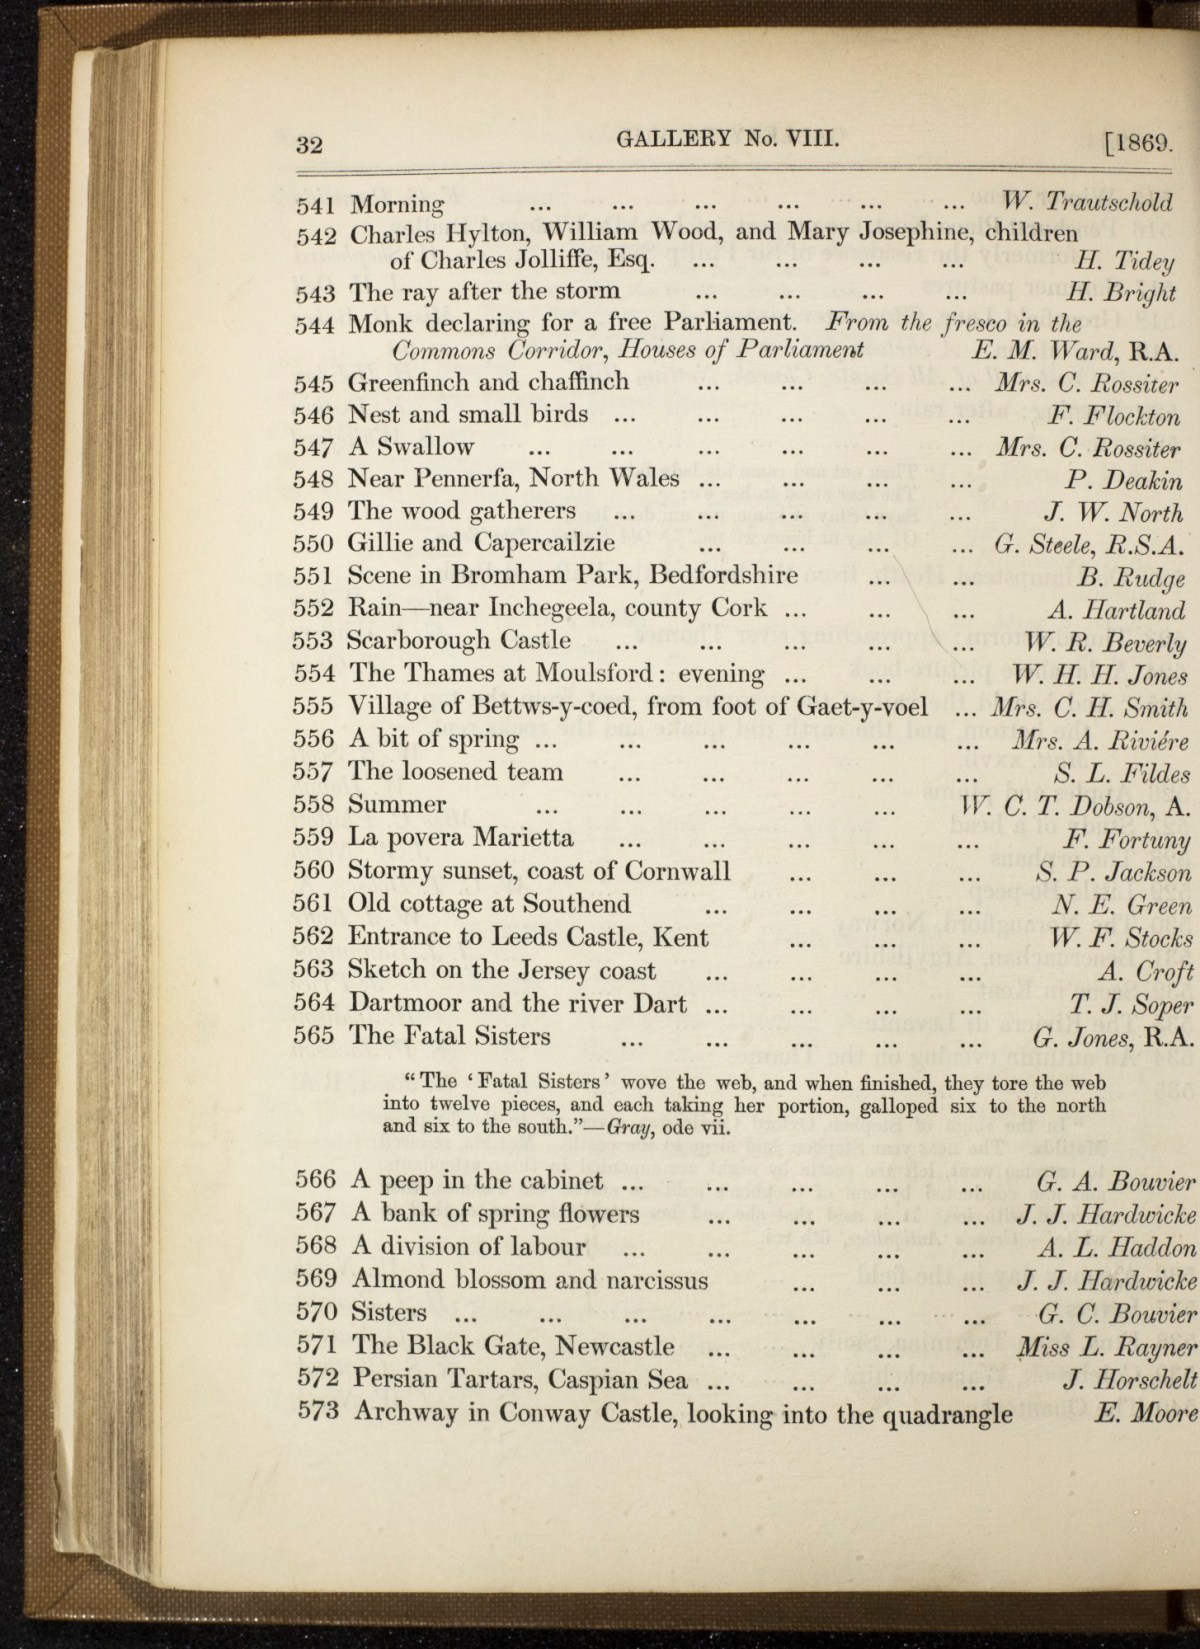 32 GALLERY No. VIII. [1869.
541 Morning ... ... ... ... ... ... W. Trautschold
542 Charles Hylton, William Wood, and Mary Josephine, children
of Charles Jolliffe, Esq. ... ... ... ... H. Tidey
543 The ray after the storm ... ... ... ... H. Bright
544 Monk declaring for a free Parliament. From the fresco in the
Commons Corridor, Houses of Parliament E. M. Ward, R.A.
545 Greenfinch and chaffinch ... ... ... ... Mrs. C. Rossiter
546 Nest and small birds ... ... ... ... ... F. Flockton
547 A Swallow ... ... ... ... ... ... Mrs. C. Rossiter
548 Near Pennerfa, North Wales ... ... ... ... P. Deakin
549 The wood gatherers ... ... ... ... ... J. W. North
550 Gillie and Capercailzie ... ... ... ... G. Steele, R.S.A.
551 Scene in Bromham Park, Bedfordshire ... ... B. Rudge
552 Rain—near Inchegeela, county Cork ... ... ... A. Hartland
553 Scarborough Castle ... ... ... ... ... W. R. Beverly
554 The Thames at Moulsford : evening ... ... ... W. H. H. Jones
555 Village of Bettws-y-coed, from foot of Gaet-y-voel ... Mrs. C. H. Smith
556 A bit of spring ... ... ... ... ... ... Mrs. A. Riviére
557 The loosened team ... ... ... ... ... S. L. Fildes
558 Summer ... ... ... ... ... W. C. T. Dobson, A.
559 La povera Marietta ... ... ... ... ... F. Fortuny
560 Stormy sunset, coast of Cornwall ... ... ... S. P. Jackson
561 Old cottage at Southend ... ... ... ... N. E. Green
562 Entrance to Leeds Castle, Kent ... ... ... W. F. Stocks
563 Sketch on the Jersey coast ... ... ... ... A. Croft
564 Dartmoor and the river Dart ... ... ... ... T. J. Soper
565 The Fatal Sisters ... ... ... ... ... G. Jones, R.A.
“The ‘Fatal Sisters’ wove the web, and when finished, they tore the web
into twelve pieces, and each taking her portion, galloped six to the north
and six to the south.”—Gray, ode vii.
566 A peep in the cabinet ... ... ... ... ... G. A. Bouvier
567 A bank of spring flowers ... ... ... ... J. J. Hardwicke
568 A division of labour ... ... ... ... ... A. L. Haddon
569 Almond blossom and narcissus ... ... ... J. J. Hardwicke
570 Sisters ... ... ... ... ... ... ... G. C. Bouvier
571 The Black Gate, Newcastle ... ... ... ... Miss L. Rayner
572 Persian Tartars, Caspian Sea ... ... ... ... J. Horschelt
573 Archway in Conway Castle, looking into the quadrangle E. Moore